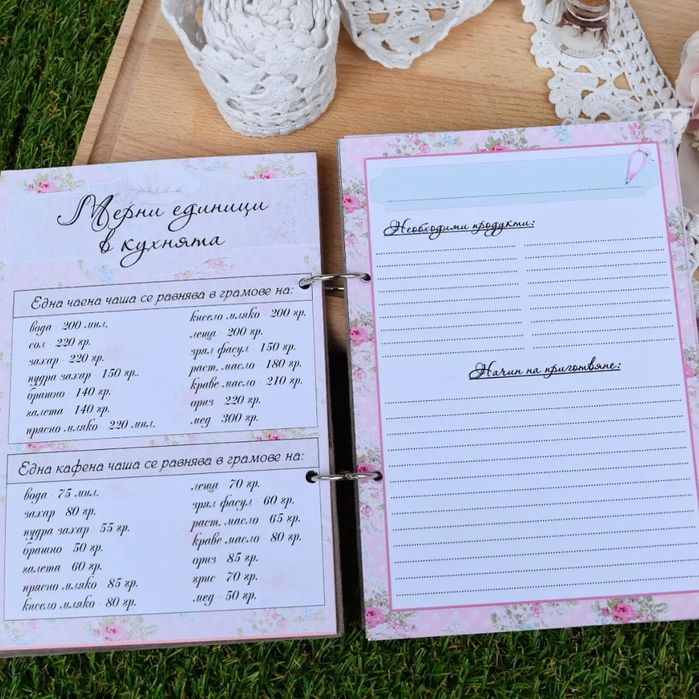 Мерни единици
в кухнята
Една чаена чаша се равнява в грамове на:
вода - 200 мил.
сол - 220 гр.
захар - 220 гр.
пудра захар - 150 гр.
брашно - 140 гр.
галета - 140 гр.
прясно мляко - 220 мил.
кисело мляко - 200 гр.
леща - 200 гр.
зрял фасул - 150 гр.
раст. масло - 180 гр.
краве масло - 210 гр.
ориз - 220 гр.
мед - 300 гр.
Една кафена чаша се равнява в грамове на:
вода - 75 мил.
захар - 80 гр.
пудра захар - 55 гр.
брашно - 50 гр.
галета - 60 гр.
прясно мляко - 85 гр.
кисело мляко - 80 гр.
леща - 70 гр.
зрял фасул - 60 гр.
раст. масло - 65 гр.
краве масло - 80 гр.
ориз - 85 гр.
грис - 70 гр.
мед - 50 гр.
Необходими продукти:
Начин на приготвяне: